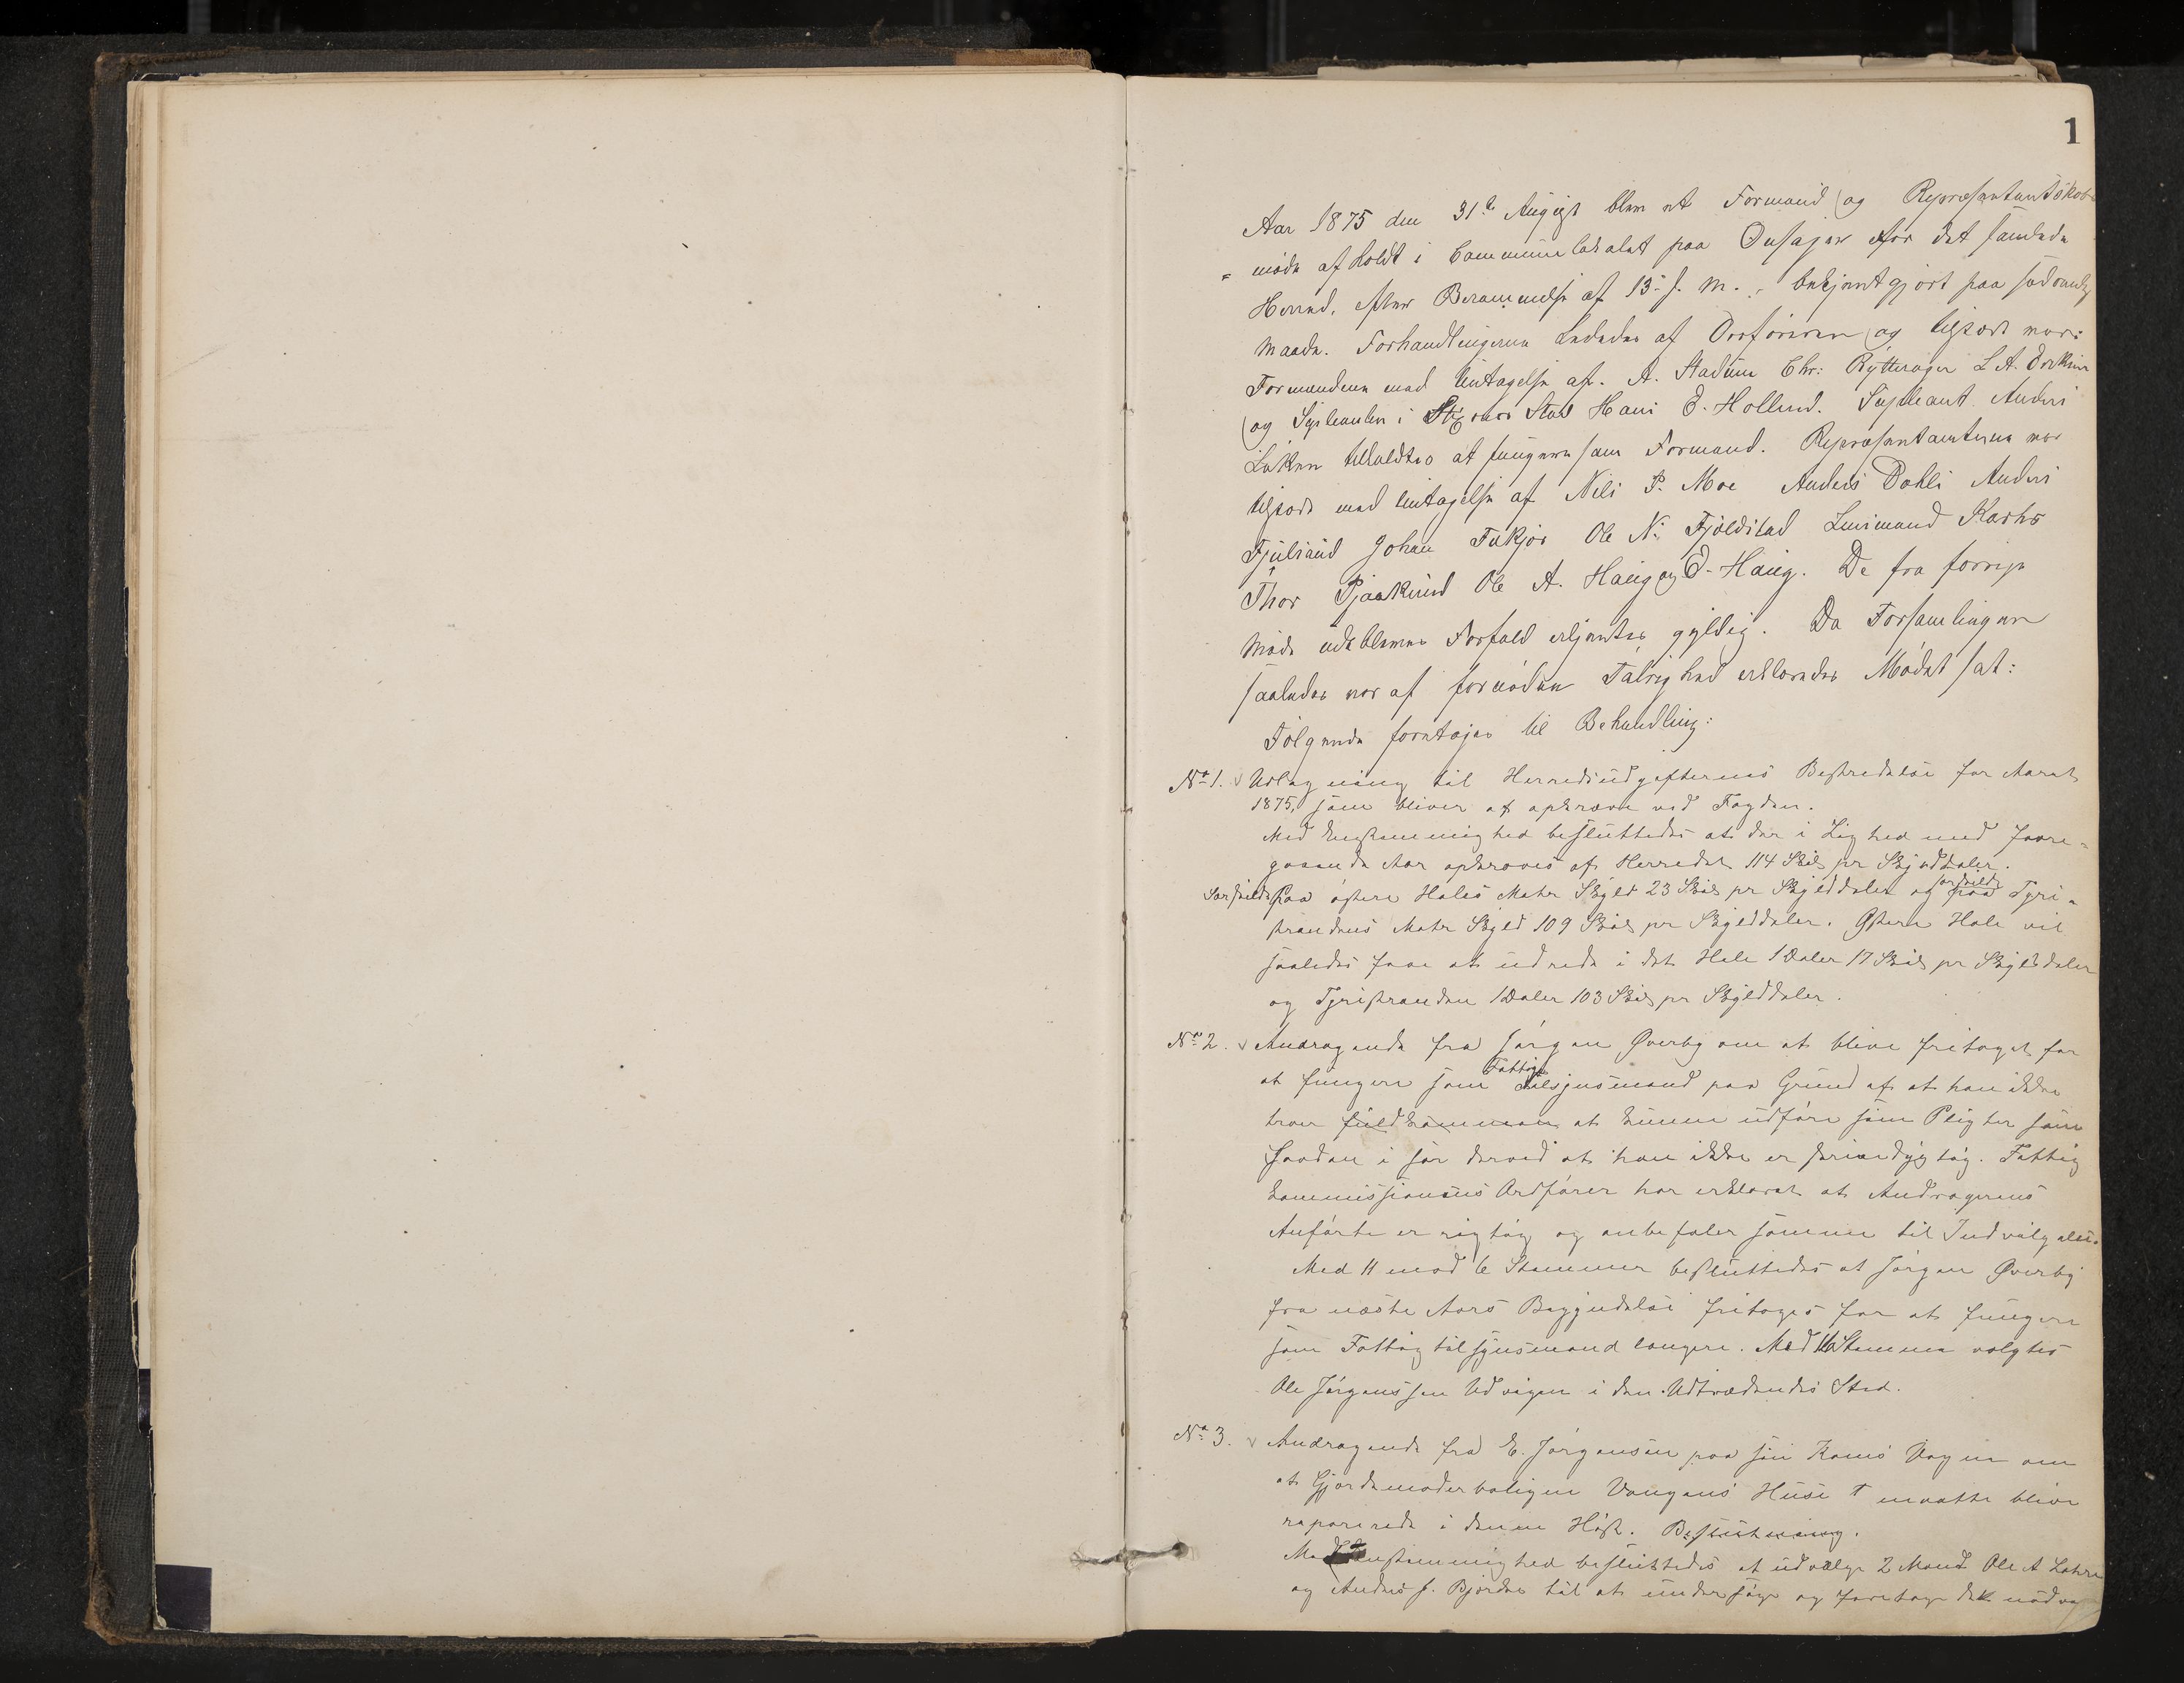 1
Aar 1875 den 31te August blev et Formand og Repræsentantskabs
= møde afholdt i Communelokalet paa for det samlede
Herred, efter Berammelse af 13. s. M. - bekjendtgjort paa sædvanlig
Maade. Forhandlingerne lededes af Ordføreren og tilstede var:
Formændene med Undtagelse af. A. Stadum Chr: Rytterager L A.
og Supleanten i Sted Hans E. Hollerud. Supleant Anders
Løken tilkaldtes at fungere som Formand. Repræsentanterne var
tilstede med Undtagelse af Nils P. Moe Anders Dahli Anders
Fjulsrud Johan Ole N. Fjeldstad Lensmand
Thor Ole A. Haug og E. Haug. De fra forrige
Møde udeblevne Forfald erkjendtes gyldig. Da Forsamlingen
saaledes var af fornøden Talrighed erklæredes Mødet sat:
Følgende foretoges til Behandling:
No 1. Udligning til Herredsudgifternes Bestridelse for Aaret
1875, som bliver at opkræve ved Fogden.
Med Enstemmighed besluttedes at der i Lighed med fore-
gaaende Aar opkræves af Herredet 114 Skil pr Skylddaler.
Særskilt Paa østere Holes Matr Skyld 23 Skil pr Skylddaler og særskilt paa Tyri-
strandens Matr Skyld 109 Skil pr Skylddaler. Østere Hole vil
saaledes faae at udrede i det Hele 1 Daler 17 Skil pr Skylddaler
og Tyristranden 1 Daler 103 Skil pr Skylddaler.
No 2. Andragende fra Jørgen Øverby om at blive fritaget for
at fungere som Fattig Tilsynsmand paa Grund af at han ikke
troer fuldkommen at kunne udføre sine Pligter som
saadan i sær derved at han ikke er skrivedygtig. Fattig
kommissionens Ordfører har erklæret at Andragerens
Anførte er rigtig og anbefaler samme til Indvilgelse.
Med 11 mod 6 Stemmer besluttedes at Jørgen Øverby
fra næste Aars Begyndelse fritages for at fungere
som Fattigtilsynsmand længere. Med 16 Stemmer valgtes
Ole Jørgenssen Udvigen i den Udtrædendes Sted.
No 3. Andragende fra E. Jørgensen paa sin Kones Vegne om
at Gjordemoderboligen Vangens Huse maatte blive
reparerede i denne Høst. Beslutning.
Med Enstemmighed besluttedes at udvælge 2 Mænd Ole A
og Anders s. Bjørke til at undersøge og foretage det